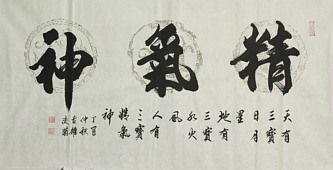 精氣神
天有
三寶
日月
星
地有
三寶
水火
風
人有
三寶
精氣
神
丁酉
仲秋